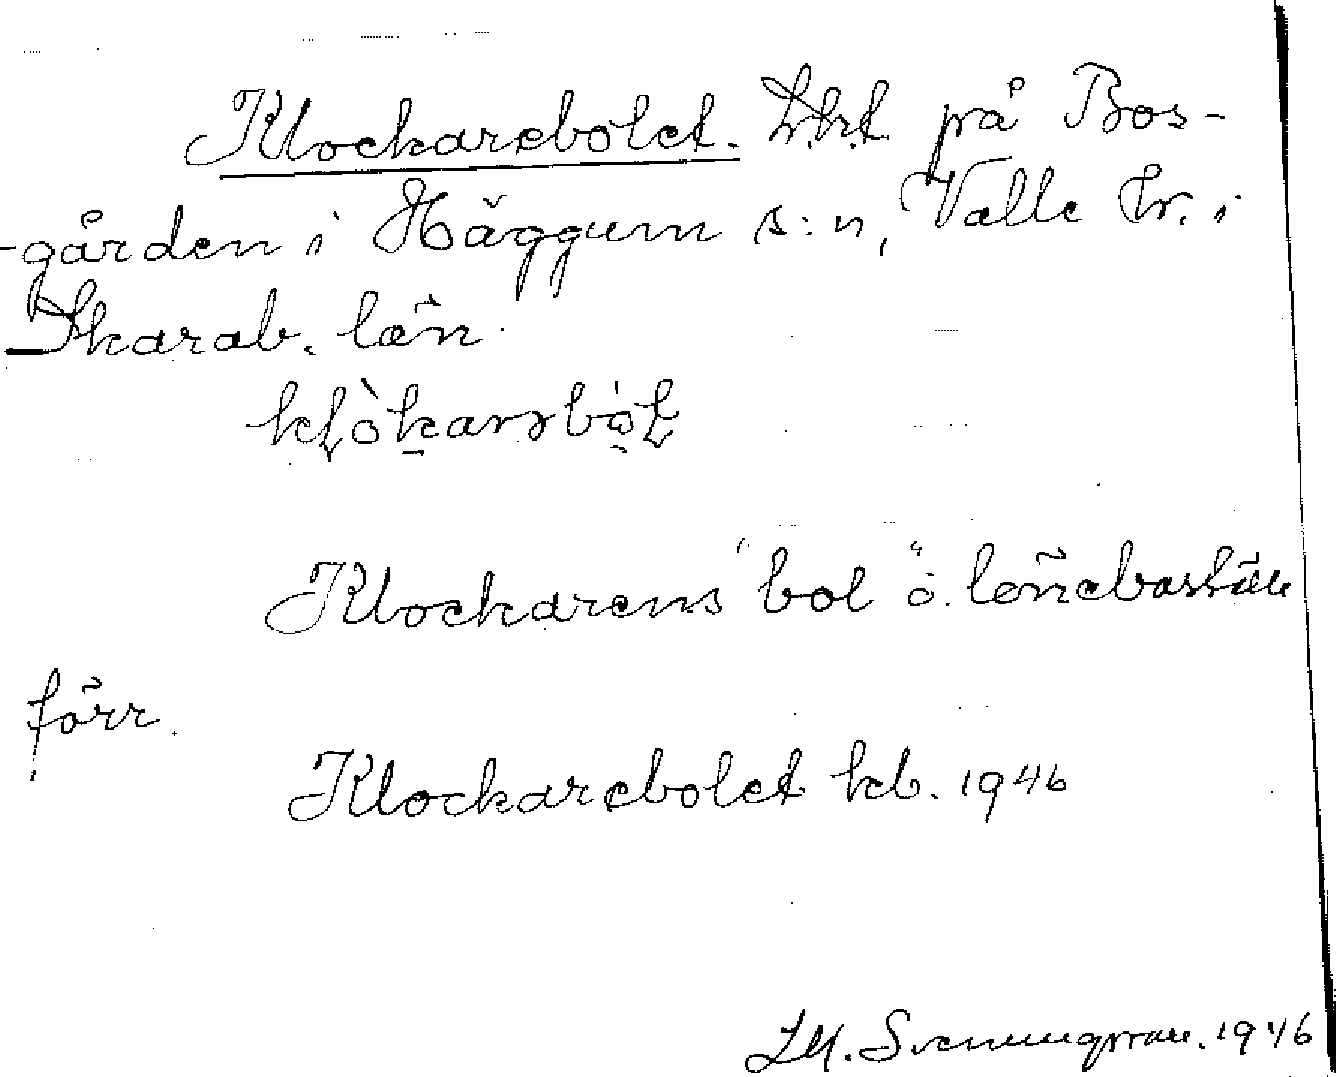 Klockarebolet. Lht på Bos-
-gården i Häggum s:n, Valle hr. i
Skarab. län.
Klockarens "bol" o. löneboställe
förr.
Klockarebolet kb. 1946
Svenungsson. 1946